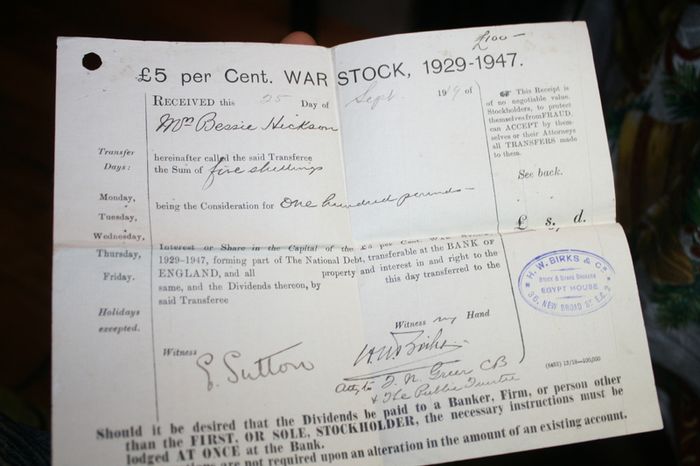 £100—
£5 per Cent. WAR STOCK, 1929-1947.
RECEIVED this 25 Day of Sept. 1919 of
Mrs Bessie Hickson
Transfer
Days:
hereinafter called the said Transferee
the Sum of five shillings
Monday,
Tuesday,
being the Consideration for One hundred pounds—
Wednesday,
Thursday,
Friday.
Interest or Share in the Capital of the £5 per Cent. War
1929-1947, forming part of The National Debt, transferable at the BANK OF
ENGLAND, and all property and interest in and right to the
same, and the Dividends thereon, by this day transferred to the
said Transferee
Holidays
excepted.
This Receipt is
of no negotiable value.
Stockholders, to protect
themselves from FRAUD,
can ACCEPT by them-
selves or their Attorneys
all TRANSFERS made
to them.
See back.
£ s. d.
H. W. BIRKS & Co.
STOCK & SHARE BROKERS
EGYPT HOUSE
36, NEW BROAD ST. E.C. 2
Witness my Hand
Witness
E. Sutton
H W Birks
Atty to J. N. Greer CB
& The Public Trustee
Should it be desired that the Dividends be paid to a Banker, Firm, or person other
than the FIRST, OR SOLE, STOCKHOLDER, the necessary instructions must be
lodged AT ONCE at the Bank.
are not required upon an alteration in the amount of an existing account.